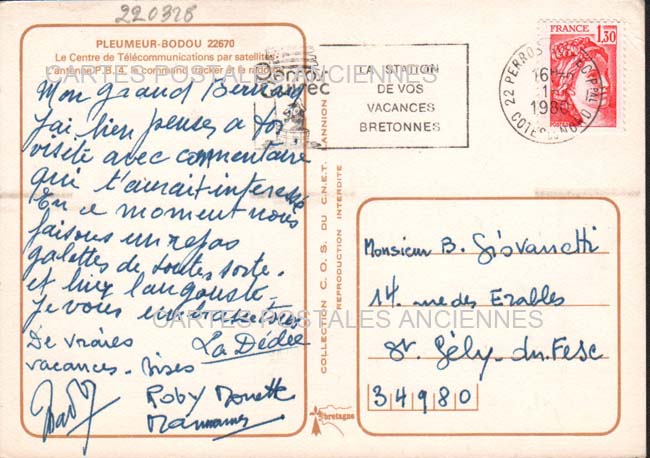 220328
PLEUMEUR-BODOU 22670
Le Centre de Télécommunications par satellites
L'antenne P.B.4. à command tracker à la
Mon Grand
J'ai bien penser a toi
visite avec commentaire
qui t'aurait interessé
En ce moment nous
faisons un repas
galettes de toutes sorte.
et hier langouste
Je vous embrasse tres
La Dédée
De vraies
vacances. Bises
Roby Monette
CARTES POSTALES ANCIENNES
CARTES POSTALES ANCIENNES
COLLECTION C.O.S. DU C.N.E.T. LANNION
REPRODUCTION INTERDITE
bretagne
LA STATION
DE VOS
VACANCES
BRETONNES
22 PERROS-GUIREC PPAL
16H
1980
COTES DU NORD
FRANCE
1,30
Monsieur B. Giovanetti
14. rue des Erables
St. Gély-du-Fesc
34980